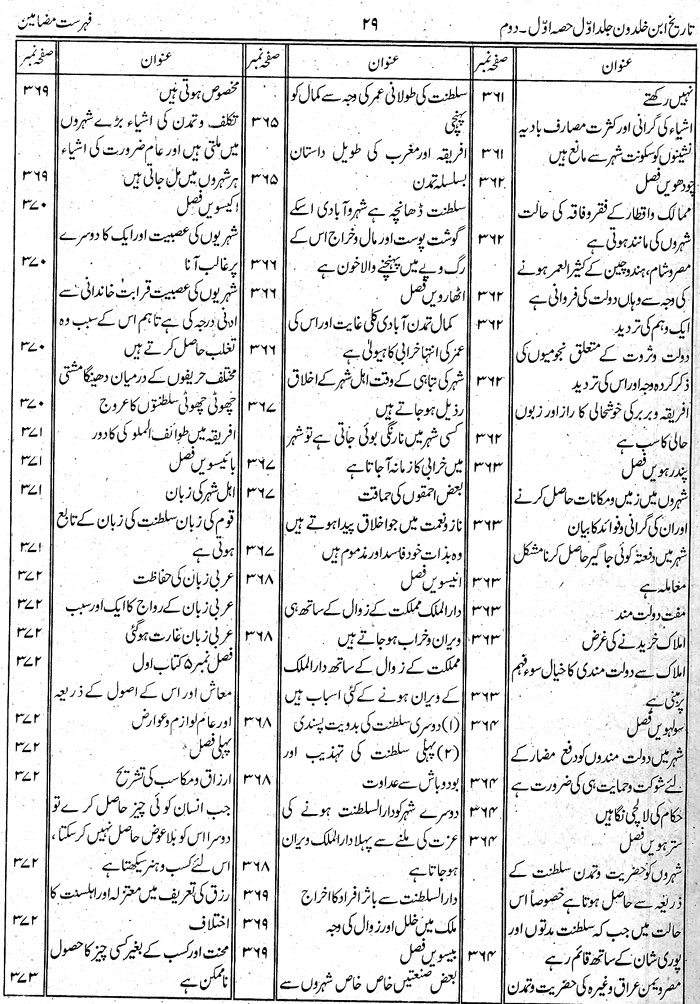 تاریخ ابن خلدون جلد اوّل حصہ اوّل۔ دوم ۲۹ فہرست مضامین
عنوان صفحہ نمبر
نہیں رکھتے ۳۶۱
اشیاء کی گرانی اور کثرت مصارف بادیہ
نشینوں کو سکونت شہر سے مانع ہیں ۳۶۱
چودھویں فصل ۳۶۲
ممالک واقطار کے فقر وفاقہ کی حالت
شہروں کی مانند ہوتی ہے ۳۶۲
مصر وشام، ہند وچین کے کثیر العمر ہونے
کی وجہ سے وہاں دولت کی فروانی ہے ۳۶۲
ایک وہم کی تردید ۳۶۲
دولت وثروت کے متعلق نجومیوں کی
ذکر کردہ وجہ اور اس کی تردید ۳۶۲
افریقہ و بربر کی خوشحالی کا راز اور زبوں
حالی کا سب ہے ۳۶۲
پندرہویں فصل ۳۶۳
شہروں میں زمین و مکانات حاصل کرنے
اور ان کی گرانی وفوائد کا بیان ۳۶۳
شہر میں دفعتۃ کوئی جاگیر حاصل کرنا مشکل
معاملہ ہے ۳۶۳
مفت دولت مند ۳۶۳
املاک خریدنے کی غرض ۳۶۳
املاک سے دولت مندی کا خیال سوء فہم
پرمبنی ہے ۳۶۳
سولہویں فصل ۳۶۴
شہر میں دولت مندوں کو دفع مضار کے
لئے شوکت وحمایت ہی کی ضرورت ہے ۳۶۴
حکام کی لالچی نگاہیں ۳۶۴
سترہویں فصل ۳۶۴
شہروں کو حضریت وتمدن سلطنت کے
ذریعہ سے حاصل ہوتا ہے خصوصاً اس
حالت میں جب کہ سلطنت مدتوں اور
پوری شان کے ساتھ قائم رہے ۳۶۴
مصر ویمن عراق وغیرہ کی حضریت وتمدن
عنوان صفحہ نمبر
سلطنت کی طولانی عمر کی وجہ سے کمال کو
پہنچی ۳۶۵
افریقہ اور مغرب کی طویل داستان
بسلسلہ تمدن ۳۶۵
سلطنت ڈھانچہ ہے شہر وآبادی اسکے
گوشت پوست اور مال وخراج اس کے
رگ وپے میں پہنچنے والا خون ہے ۳۶۶
اٹھارویں فصل ۳۶۶
کمال تمدن آبادی کلی غایت اور اس کی
عمر کی انتہا خرابی کا ہیولیٰ ہے ۳۶۶
شہر کی تباہی کے وقت اہل شہر کے اخلاق
رذیل ہوجاتے ہیں ۳۶۷
کسی شہر میں نارنگی بوئی جاتی ہے تو شہر
میں خرابی کا زمانہ آجاتا ہے ۳۶۷
بعض احمقوں کی حماقت ۳۶۷
ناز ونعمت میں جو اخلاق پیدا ہوتے ہیں
وہ بذات خود فاسد اور مذموم ہیں ۳۶۷
انیسویں فصل ۳۶۸
دار الملک مملکت کے زوال کے ساتھ ہی
ویران وخراب ہوجاتے ہیں ۳۶۸
مملکت کے زوال کے ساتھ دار الملک
کے ویران ہونے کے کئی اسباب ہیں
(۱) دوسری سلطنت کی بدویت پسندی ۳۶۸
(۲) پہلی سلطنت کی تہذیب اور
بودوباش سے عداوت ۳۶۸
دوسرے شہر کو دار السلطنت ہونے کی
عزت کی ملنے سے پہلا دار الملک ویران
ہوجاتا ہے ۳۶۸
دار السلطنت سے باثر افراد کا اخراج ۳۶۹
ملک میں خلل اور زوال کی وجہ ۳۶۹
بیسویں فصل ۳۶۹
بعض صنعتیں خاص خاص شہروں سے
عنوان صفحہ نمبر
مخصوص ہوتی ہیں ۳۶۹
تکلف وتمدن کی اشیاء بڑے شہروں
میں ملتی ہیں اور عام ضرورت کی اشیاء
ہر شہروں میں مل جاتی ہیں ۳۶۹
اکیسویں فصل ۳۷۰
شہریوں کی عصبیت اور ایک کا دوسرے
پر غالب آنا ۳۷۰
شہریوں کی عصبیت قرابت خاندانی سے
ادنی درجہ کی ہے تاہم اس کے سبب وہ
تغلب حاصل کرتے ہیں ۳۷۰
مختلف حریفوں کے درمیان دھینگا مشتی
چھوٹی چھوٹی سلطنتوں کا عروج ۳۷۰
افریقہ میں طوائف الملوکی کا دور ۳۷۱
بائیسویں فصل ۳۷۱
اہل شہر کی زبان ۳۷۱
قوم کی زبان سلطنت کی زبان کے تابع
ہوتی ہے ۳۷۱
عربی زبان کی حفاظت ۳۷۲
عربی زبان کے رواج کا ایک اور سبب ۳۷۲
عربی زبان غارت ہوگئی ۳۷۲
فصل نمبر ۵ کتاب اول ۳۷۲
معاش اور اس کے اصول کے ذریعہ
اور عام لوازم وعوارض ۳۷۲
پہلی فصل ۳۷۲
ارزاق ومکاسب کی تشریح ۳۷۲
جب انسان کوئی چیز حاصل کرے تو
دوسرا اس کو بلاعوض حاصل نہیں کرسکتا،
اس لئے کسب وہنر سیکھتا ہے ۳۷۲
رزق کی تعریف میں معتزلہ اور اہلسنت کا
اختلاف ۳۷۲
محنت اور کسب کے بغیر کسی چیز کا حصول
ناممکن ہے ۳۷۳